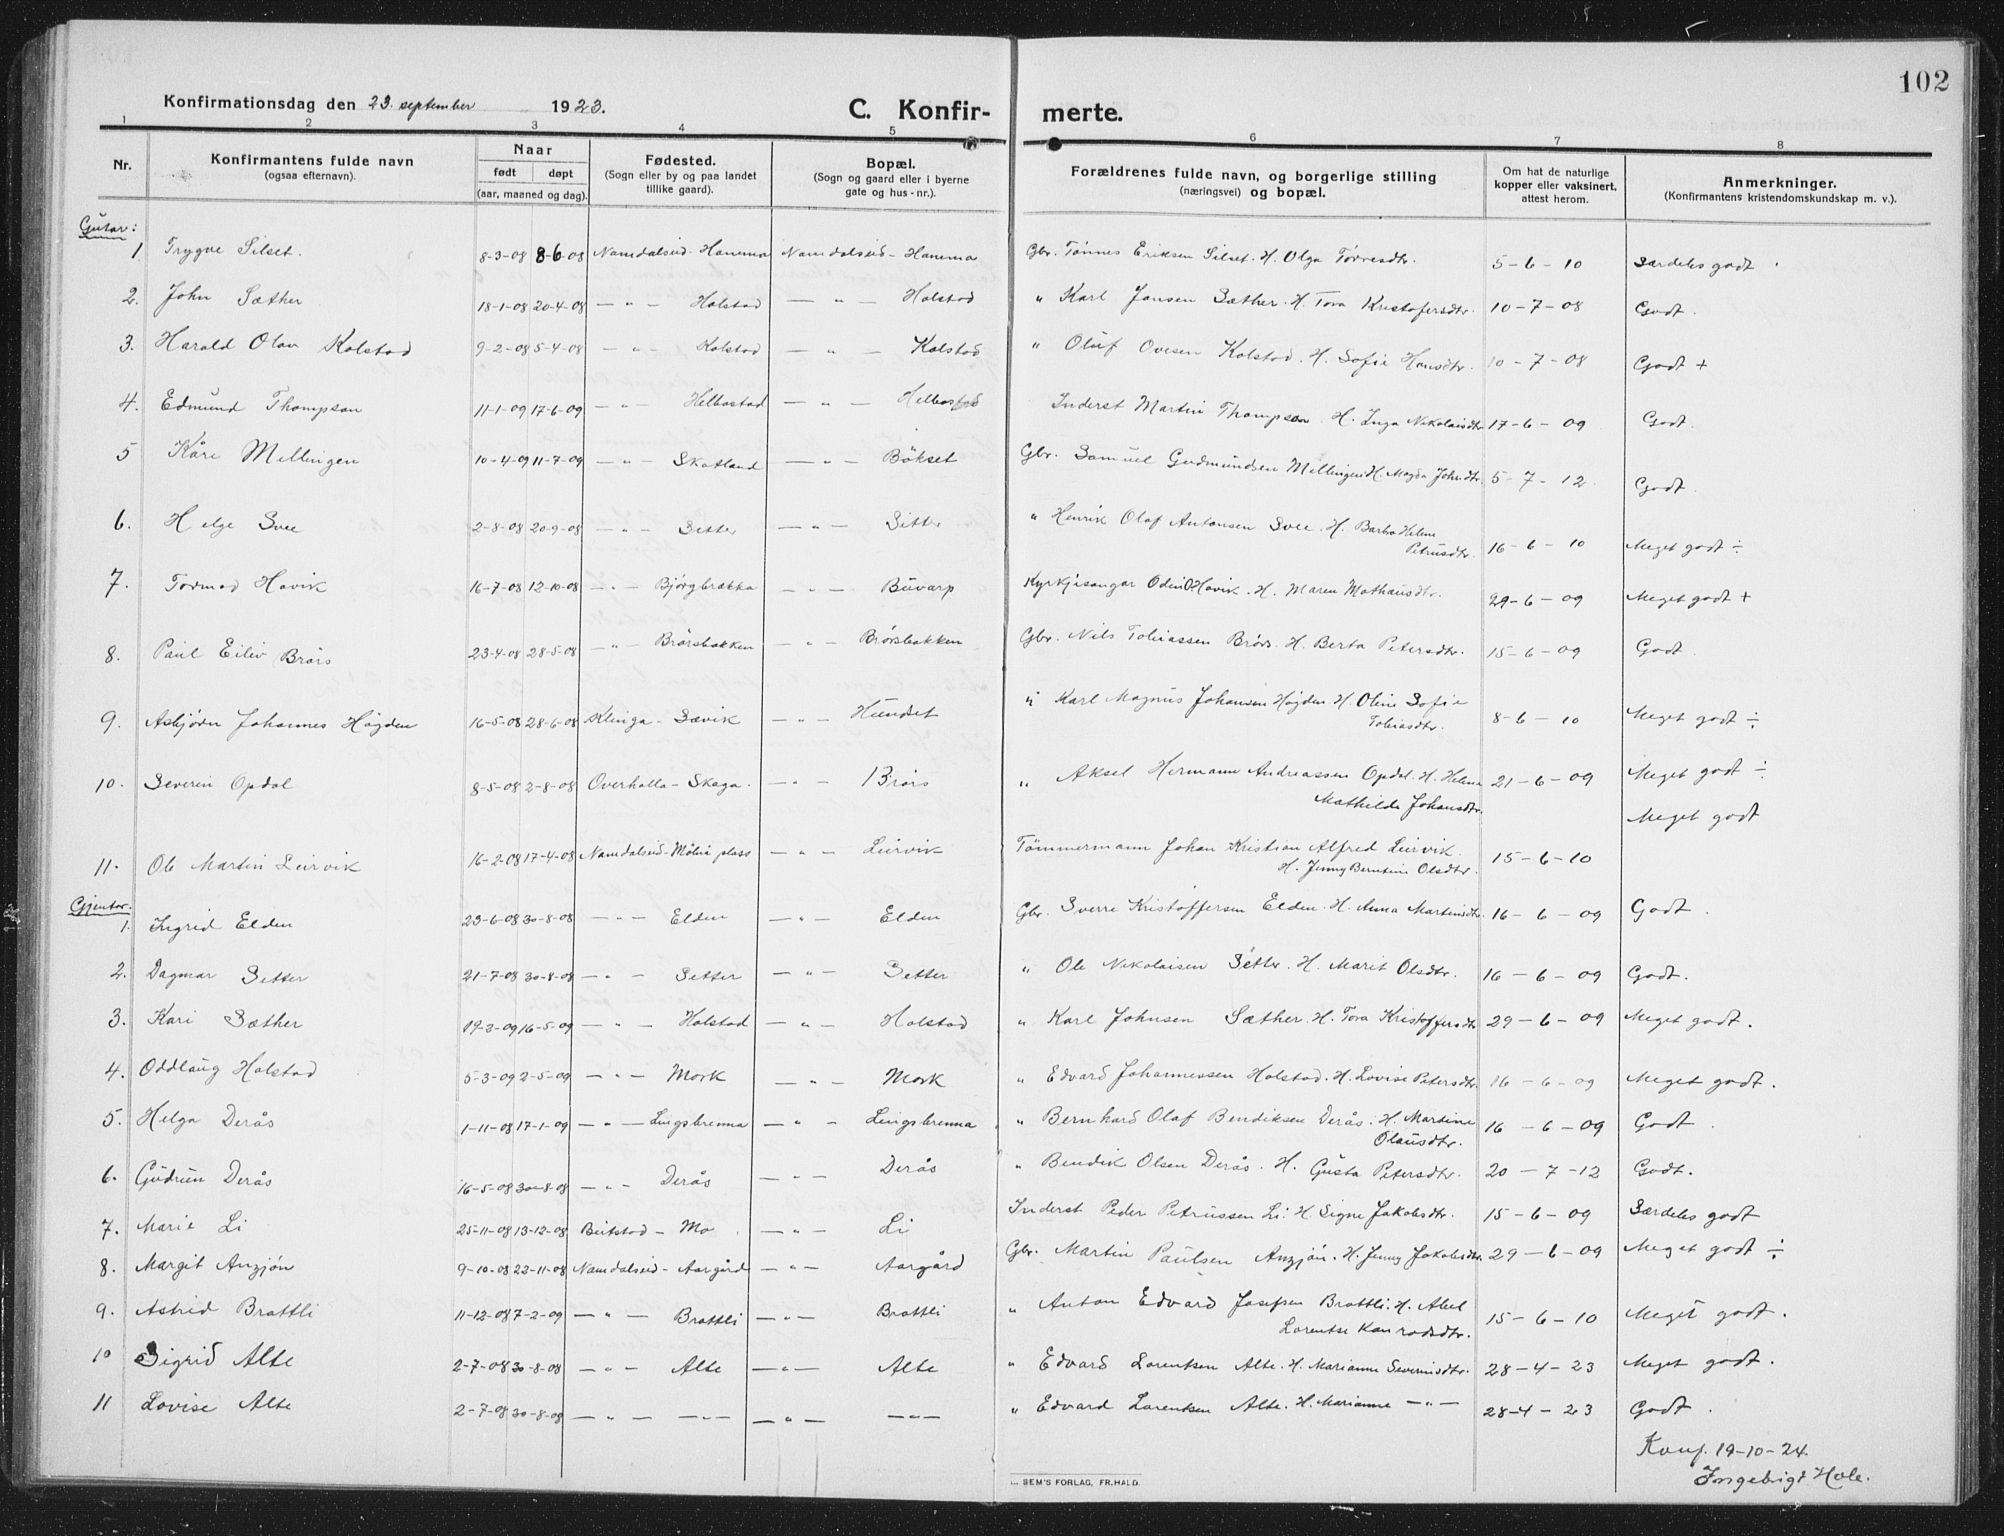 102
Konfirmationsdag den 23. september 1923.
C. Konfirmerte.
1 2 3 4 5 6 7 8
Nr.
Konfirmantens fulde navn
(ogsaa efternavn).
Naar
født døpt
(aar, maaned og dag).
Fødested.
(Sogn eller by og paa landet
tillike gaard).
Bopæl.
(Sogn og gaard eller i byerne
gate og hus-nr.).
Forældrenes fulde navn, og borgerlige stilling
(næringsvei) og bopæl.
Om hat de naturlige
kopper eller vaksinert,
attest herom.
Anmerkninger.
(Konfirmantens kristendomskundskap m. v.).
Gutar:
1 Trygve Silset. 8-3-08 8-6-08 Namdalseid - Hanema Namdalseid - Hanema Gbr. Tønnes Eriksen Silset. H. Olga Torresdtr. 5-6-10 Særdeles godt.
2. John Sæther 18-1-08 20-4-08 — " — Holstad — " — Holstad " Karl Jansen Sæther. H. Tora Kristofersdtr. 10-7-08 Godt.
3. Harald Olav Kolstad 9-2-08 5-4-08 — " — Kolstad — " — Kolstad " Oluf Ovesen Kolstad. H. Sofie Hansdtr. 10-7-08 Godt +
4. Edmund Thompson 11-1-09 17-6-09 — " — Helbostad — " — Helbostad Inderst Martin Thompson. H. Inga Nikolaisdtr 17-6-09 Godt.
5 Kåre Mellingen 10-4-09 11-7-09 — " — Skatland — " — Bökset Gbr. Samuel Gudmundsen Mellingen H. Magda Johnsdtr 5-7-12. Godt.
6. Helge Svee 2-8-08 20-9-08 — " — Setter — " — Sitter " Henrik Olaf Antonsen Svee. H. Barbro Helene
Petrusdtr. 16-6-10 Meget godt ÷
7. Tormod Havik 16-7-08 12-10-08 — " — Bjørgbrækka — " — Buvarp Kyrkjesangar Odin O. Havik. H. Maren Mathausdtr. 29-6-09 Meget godt +
8. Paul Eiliv Brørs 23-4-08 28-5-08 — " — Brørsbakken — " — Brørsbakken Gbr. Nils Tobiassen Brørs. H. Berta Petersdtr. 15-6-09 Godt.
9. Asbjørn Johannes Høgden 16-5-08 28-6-08 Klinga - Sævik — " — Hundet " Karl Magnus Johansen Høgden. H. Oline Sofie
Tobiasdtr. 8-6-10 Meget godt ÷
10. Severin Opdal 8-5-08 2-8-08 Overhalla - Skaga. — " — Brørs " Aksel Hermann Andreassen Opdal. H. Helene
Mathilde Johansdtr. 21-6-09 Meget godt ÷
Meget godt
11. Ole Martin Leirvik 16-2-08 17-4-08 Namdalseid - Mölnå plass — " — Leirvik Tömmermann Johan Kristian Alfred Leirvik.
H. Jenny Berntine Olsdtr. 15-6-10
Gjentor.
1. Ingrid Elden 23-6-08 30-8-08 — " — Elden — " — Elden Gbr. Sverre Kristoffersen Elden. H. Anna Martinsdtr. 16-6-09 Godt.
2. Dagmar Setter 21-7-08 30-8-08 — " — Setter — " — Setter " Ole Nikolaisen Setter. H. Marit Olsdtr. 16-6-09 Godt.
3. Kari Sæther 19-2-09 16-5-09 — " — Holstad — " — Holstad " Karl Johnsen Sæther. H. Tora Kristoffersdtr 29-6-09 Meget godt.
4. Oddlaug Holstad 5-3-09 2-5-09 — " — Mork — " — Mork " Edvard Johannessen Holstad. H. Lovise Petersdtr 16-6-09 Meget godt.
5. Helga Derås 1-11-08 17-1-09 — " — Lingsbrenna — " — Lingsbrenna " Bernhard Olaf Bendiksen Derås. H. Martine
Olausdtr. 16-6-09 Godt.
6. Gudrun Derås 16-5-08 30-8-08 — " — Derås — " — Derås " Bendik Olsen Derås. H. Gusta Petersdtr. 20-7-12 Godt.
7. Marie Li 25-11-08 13-12-08 Beitstad - Mo — " — Li Inderst Peder Petrussen Li. H. Signe Jakobsdtr. 15-6-09 Særdeles godt
8. Margit Anzjøn 9-10-08 22-11-08 Namdalseid - Aargård — " — Aargård Gbr. Martin Paulsen Anzjøn. H. Jenny Jakobsdtr. 29-6-09 Meget godt ÷
9. Astrid Brattli 11-12-08 7-2-09 — " — Brattli — " — Brattli " Anton Edvard Josefsen Brattli. H. Abel
Lorentse Konradsdtr. 15-6-10 Meget godt.
10 Sigrid Alte 2-7-08 30-8-08 — " — Alte — " — Alte " Edvard Lorentsen Alte. H. Marianne Severinsdtr. 28-4-23 Meget godt.
11 Lovise Alte 2-7-08 30-8-08 — " — — " — — " — — " — " Edvard Lorentsen Alte. H. Marianne — " — 28-4-23 Godt.
Konf. 19-10-24.
Ingebrigt Hole.
SEM'S FORLAG, FR.HALD.